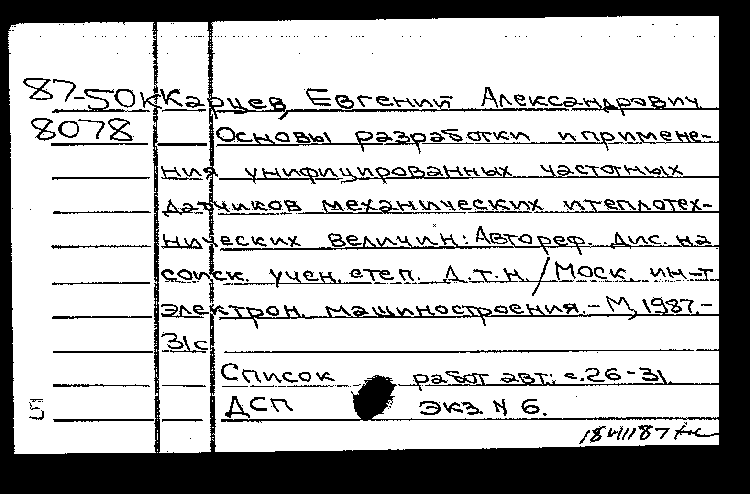 87-50к Карцев, Евгений Александрович
8078 Основы разработки и примене-
ния унифицированных частотных
датчиков механических и теплотех-
нических величин: Автореф. дис. на
соиск. учен. степ. д.т.н. / Моск. ин-т
электрон. машиностроения. – М, 1987. –
31с
Список работ авт.: с.26-31.
5 ДСП экз. N 6.